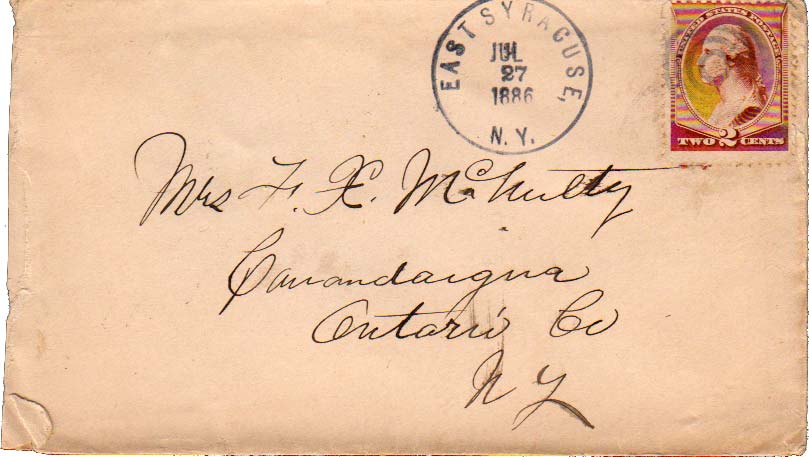 EAST SYRACUSE,
JUL
27
1886
N.Y.
UNITED STATES POSTAGE
TWO 2 CENTS
Mrs F. X. McNulty
Canandaigua
Ontario Co
NY